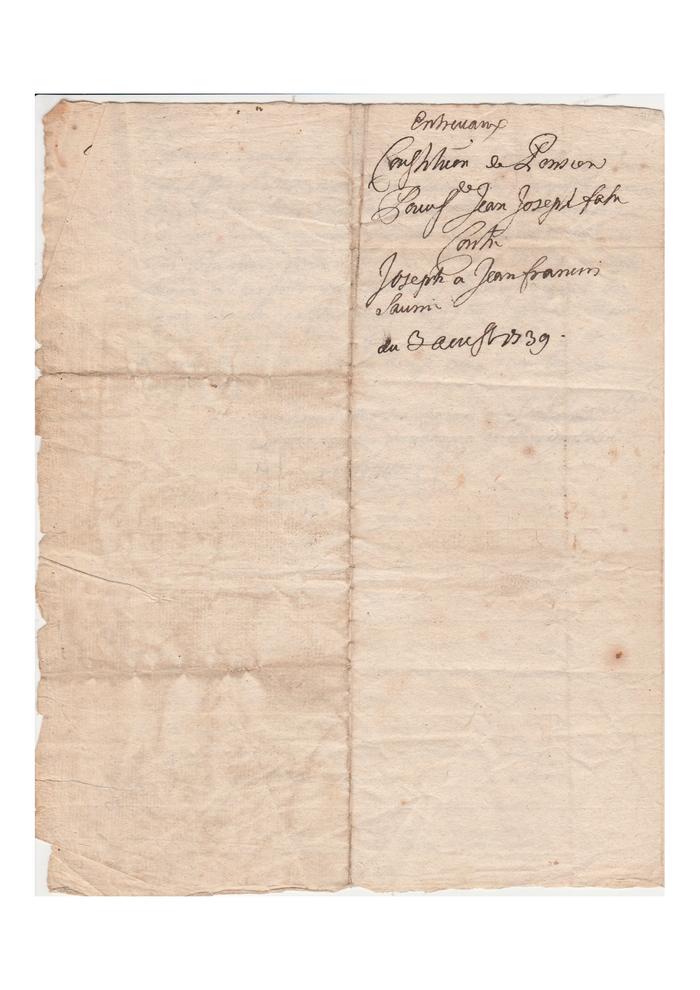 Entrevaux
Constitution de Pension
Pour Sr de Jean Joseph
Contre
Joseph a Jean francois
du 3 aoust 1739